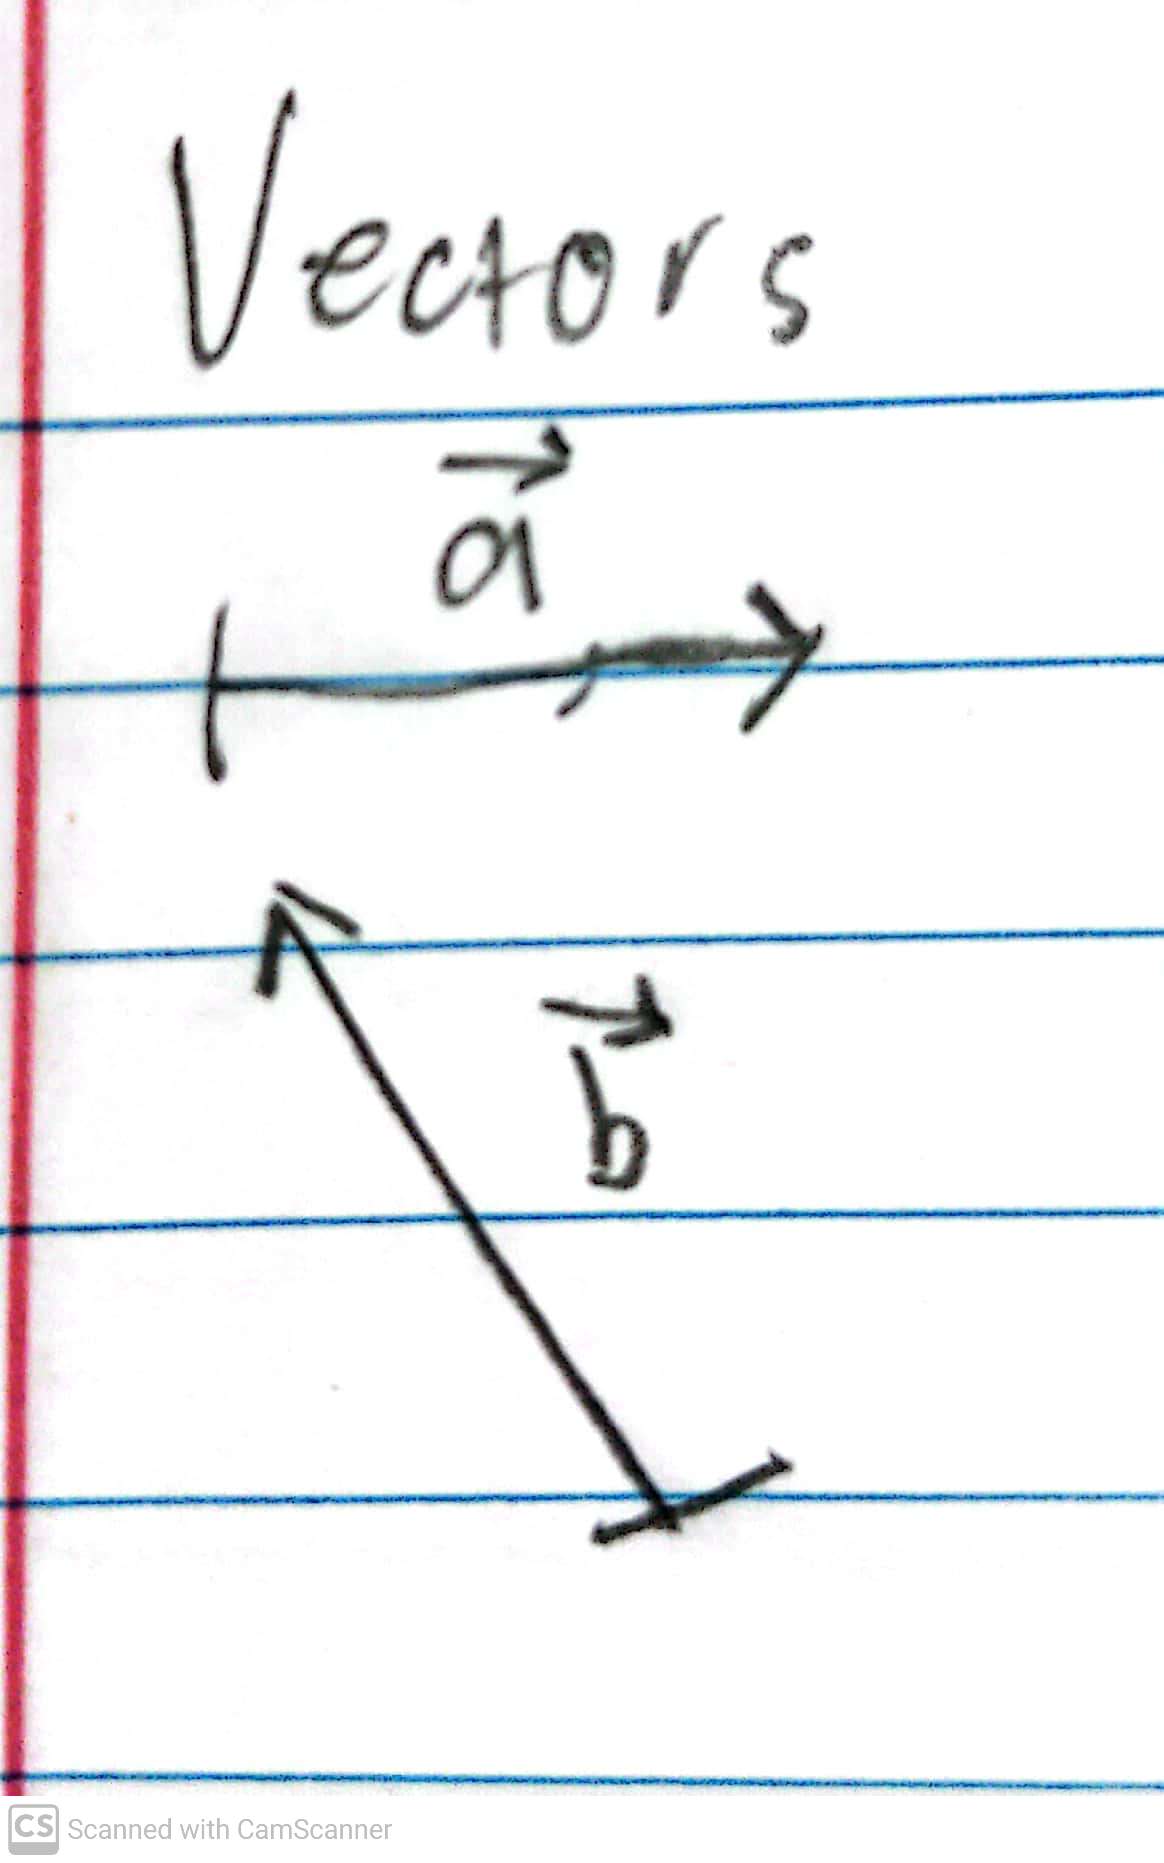 Vectors
a⃗
b⃗
CS Scanned with CamScanner